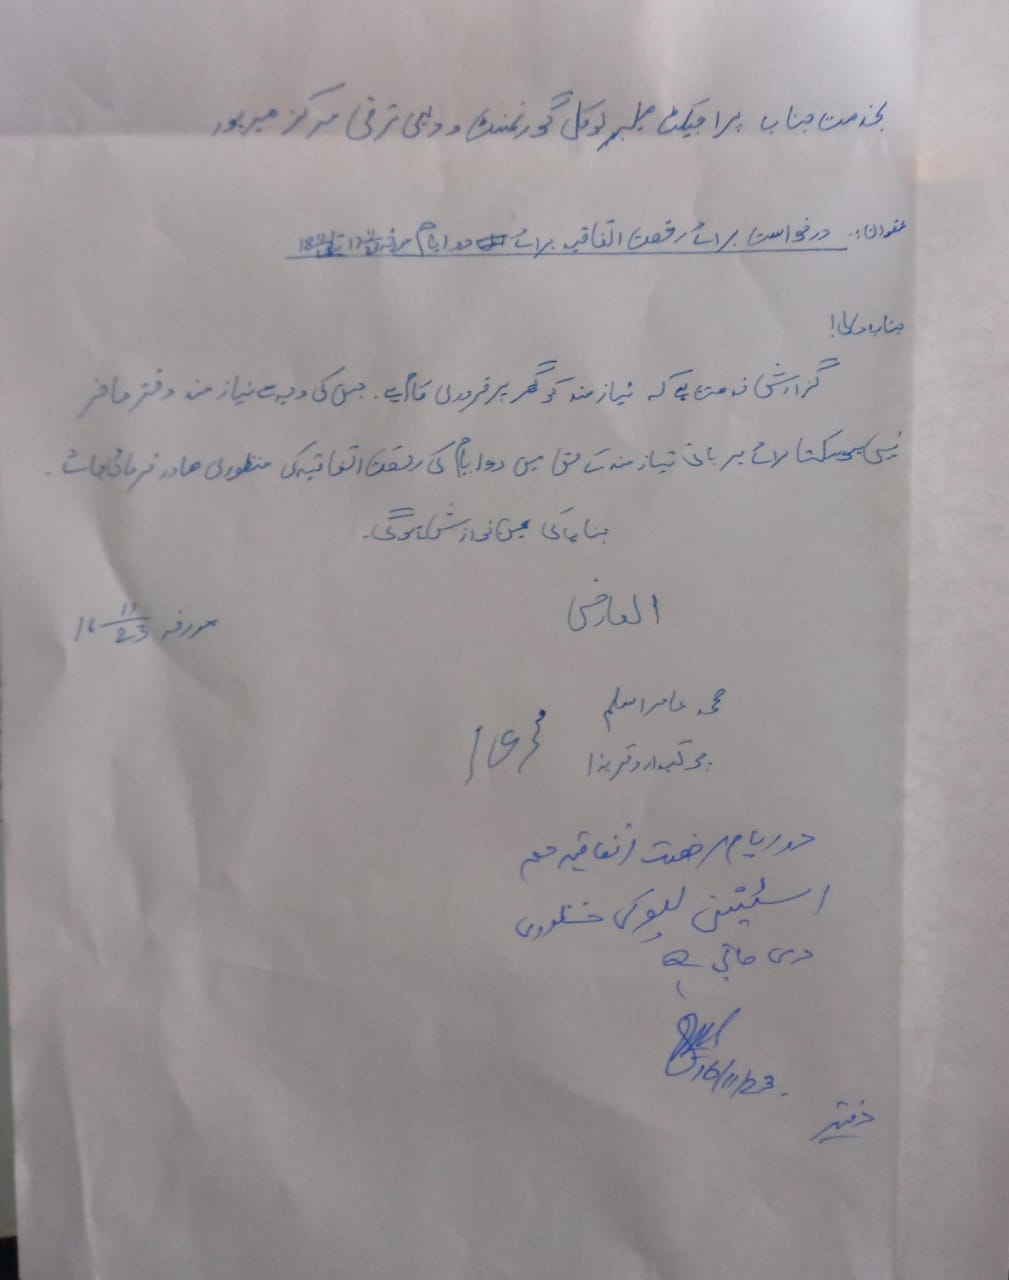 بخدمت جناب پراجیکٹ منیجر لوکل گورنمنٹ و دیہی ترقی مرکز میرپور
عنوان:۔ درخواست برائے رخصت اتفاقیہ برائے دو ایام مورخہ
جناب عالی!
گزارش خدمت ہے کہ نیازمند کو گھر پر ضروری کام ہے۔ جس کی وجہ سے نیازمند دفتر حاضر
نہیں ہو سکتا برائے مہربانی نیازمند کے حق میں دو ایام کی رخصت اتفاقیہ کی منظوری صادر فرمائی جائے۔
جناب کی عین نوازش ہوگی۔
العارض
مورخہ 16 11/23
محمد عامر اسلم
دو ایام رخصت اتفاقیہ معہ
اسٹیشن لیو کی منظوری
دی جاتی ہے
16/11/23.
دفتر